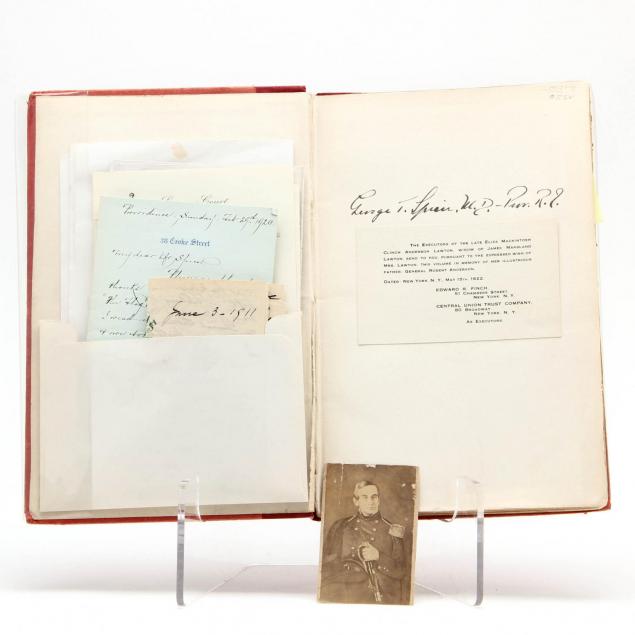 Court
Providence, Sunday Feb 29th, 1920
38 Cooke Street
My dear Dr. Spicer
June 3-1911
George T. Spicer, M.D. - Prov. R.I.
The Executors of the late Eliza Mackintosh
Clinch Anderson Lawton, widow of James Marsland
Lawton, send to you, pursuant to the expressed wish of
Mrs. Lawton, this volume in memory of her illustrious
father, General Robert Anderson.
Dated: New York, N.Y., May 15th, 1922.
Edward R. Finch,
51 Chambers Street,
New York, N. Y.
Central Union Trust Company,
80 Broadway,
New York, N. Y.
As Executors.